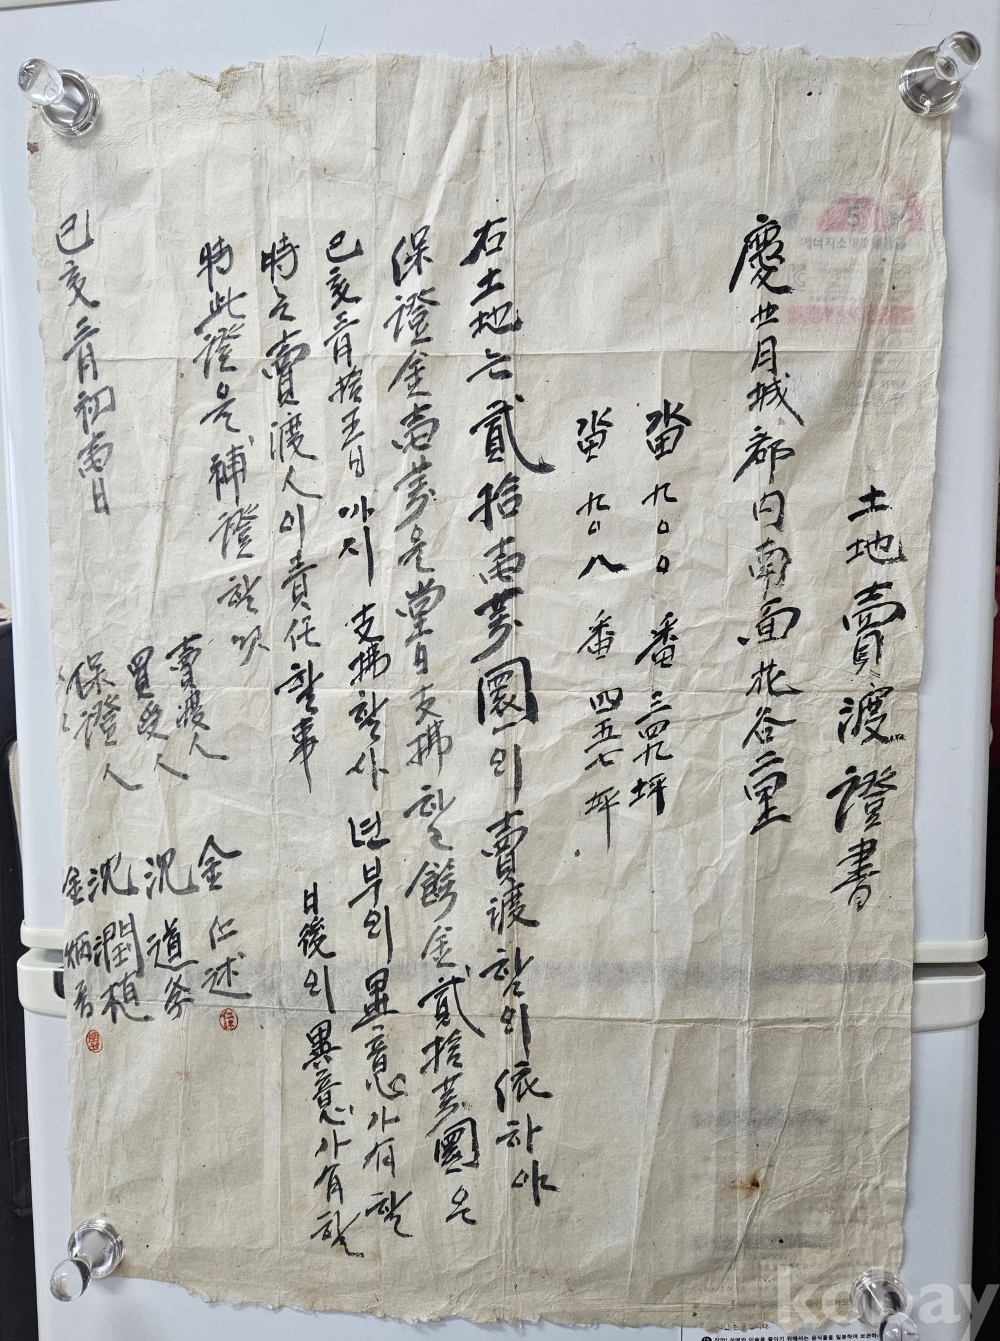 土地賣渡證書
慶北月城郡内南面花谷里
畓 九〇〇番 三四九坪
畓 九〇八番 四五七坪
右土地는貳拾壹萬圜의賣渡함의依하야
保證金壹萬은當日支拂할餘金貳拾萬圜은
己亥三月拾五日까지 支拂할사 년부의異意가有할
時는賣渡人이責任할事 日後의異意가有할
時此證은補證할次
賣渡人 金仁述
買受人 沈道
保證人 沈潤植
金炳
己亥二月初壹日
kobay